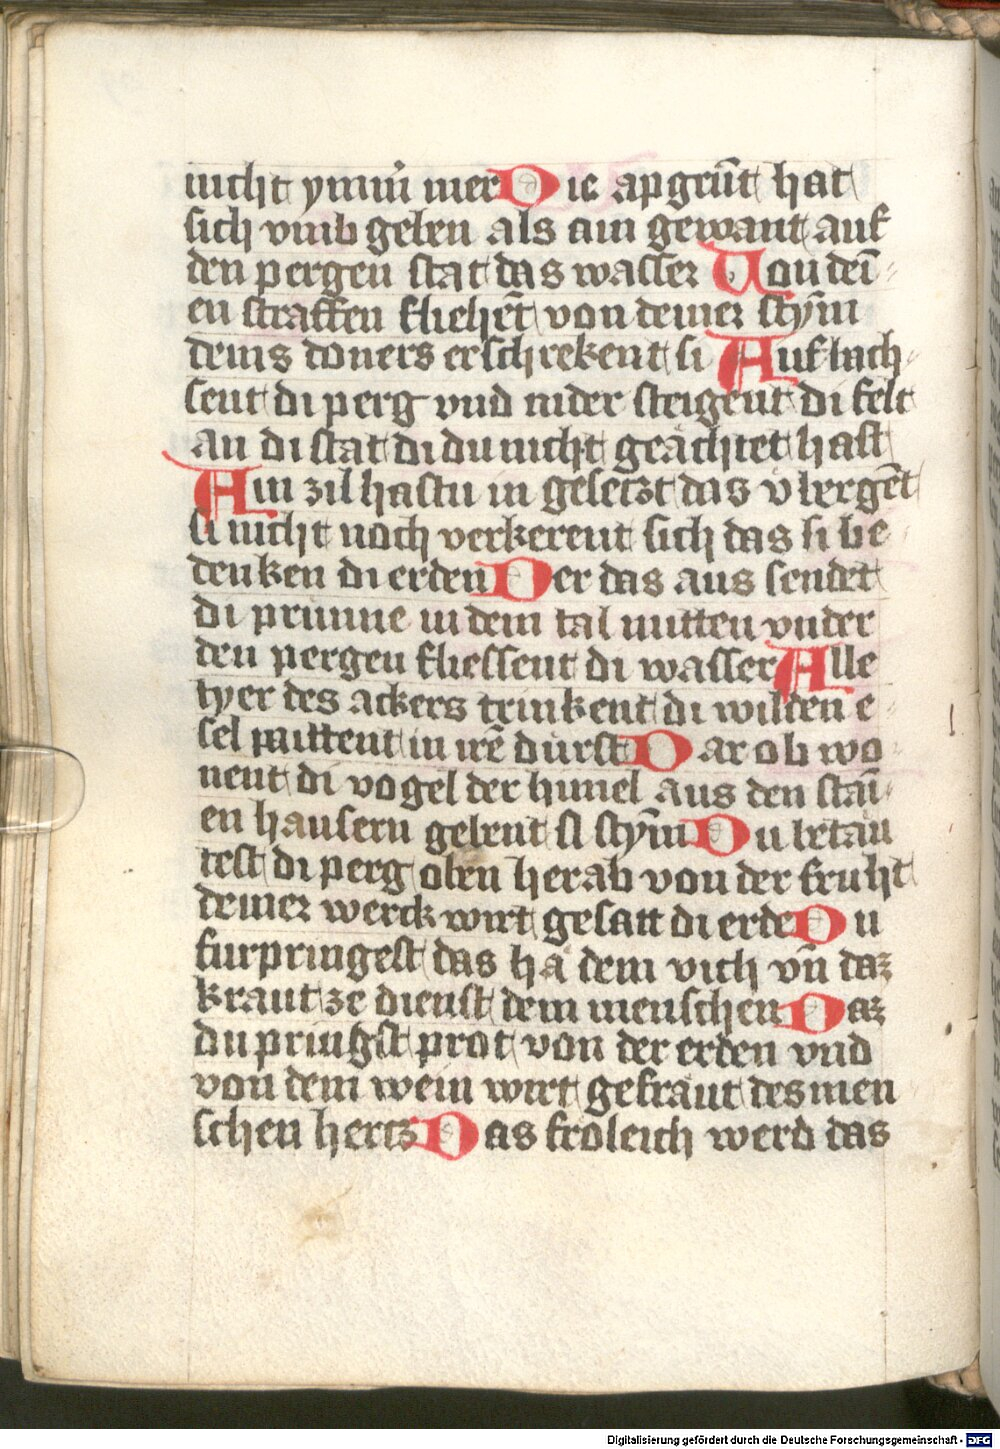 nicht ymm̃ mer Die apgrūt hat
sich vmb geben als ain gewant auf
den pergen stat das wasser Uon dei̅-
en straffen fliehēt von deiner stym̄
deins doners erschrekent si Auf lach-
sent di perg vnd nider steigent di felt
an di stat di du nicht geächtet hast
Ain zil hastu in gesetzt das v̓bergēt
si nicht noch verkerent sich das si be
denken di erden Der das aus sendet
di prunne in dem tal mitten vnder
den pergen fliessent di wasser Alle
tyer des ackers trinkent di wilden e-
sel paittent in irē durst Dar ob wo-
nent di vogel der himel aus den stai̅-
en hausern gebent si stym̄ Du betau
test di perg oben herab von der fruht
deiner werck wirt gesatt di erde Du
furpringest das hä dem vich vn̄ daz
kraut ze dienst dem menschen Daz
du pringst prot von der erden vnd
von dem wein wirt gefraut des men
schen hertz Das froleich werd das
Digitalisierung gefördert durch die Deutsche Forschungsgemeinschaft - DFG